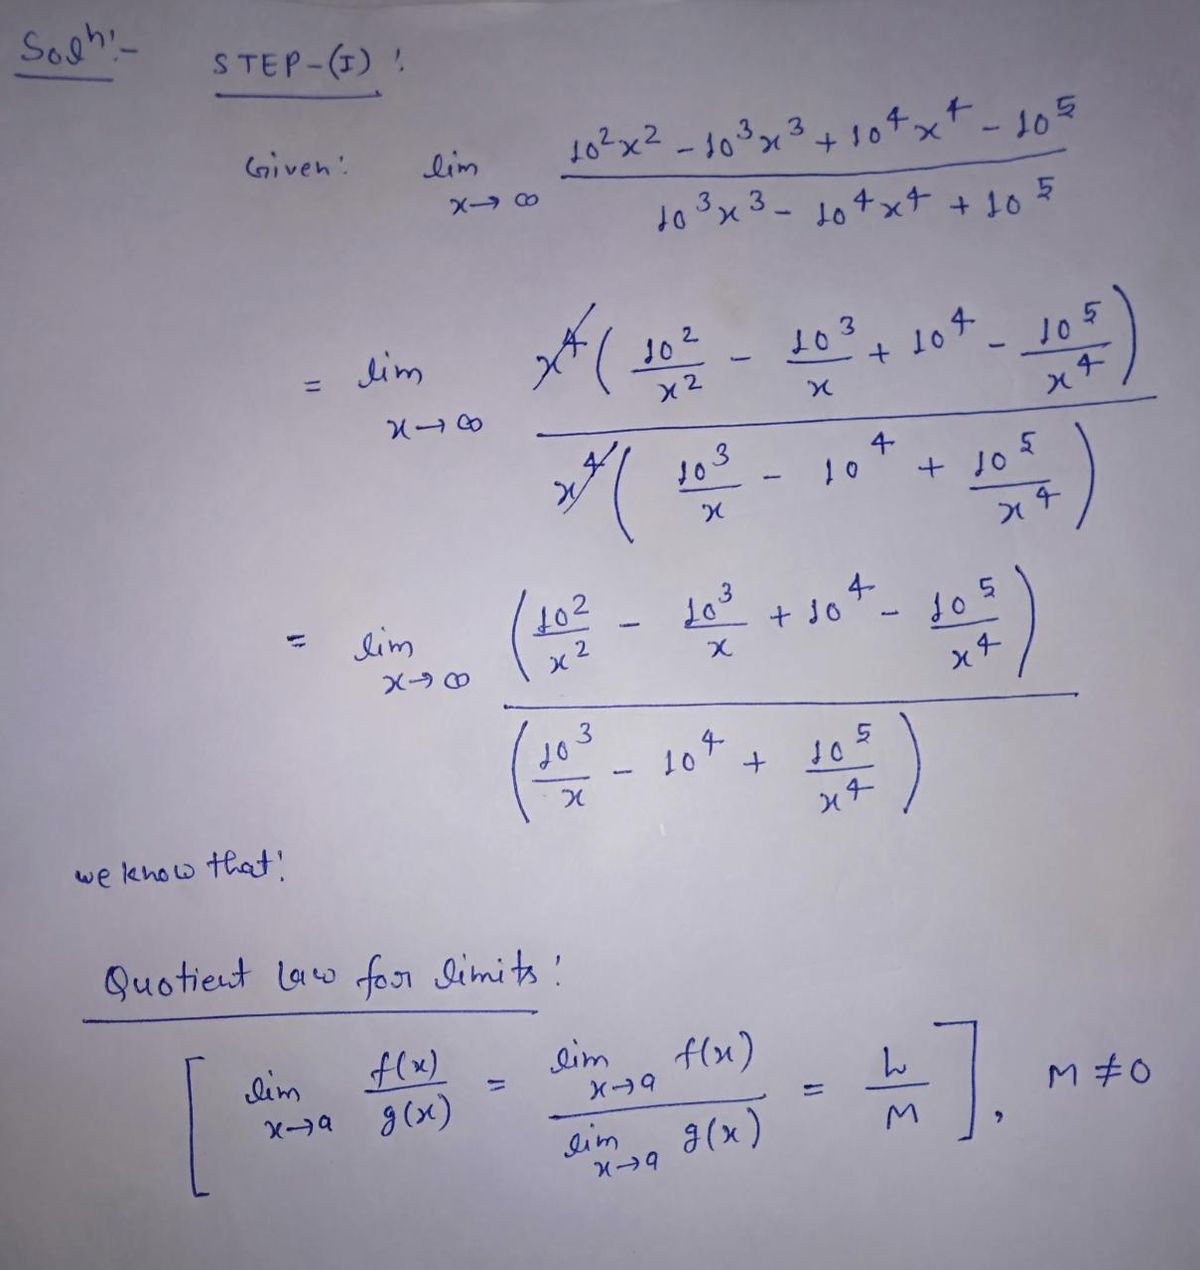 Solⁿ:-
STEP-(I) :
Given: lim x→∞ (10²x² - 10³x³ + 10⁴x⁴ - 10⁵) / (10³x³ - 10⁴x⁴ + 10⁵)
= lim x→∞ x⁴(10²/x² - 10³/x + 10⁴ - 10⁵/x⁴) / x⁴(10³/x - 10⁴ + 10⁵/x⁴)
= lim x→∞ (10²/x² - 10³/x + 10⁴ - 10⁵/x⁴) / (10³/x - 10⁴ + 10⁵/x⁴)
we know that:
Quotient law for limits :
[lim x→a f(x)/g(x) = lim x→a f(x) / lim x→a g(x) = L/M], M ≠ 0